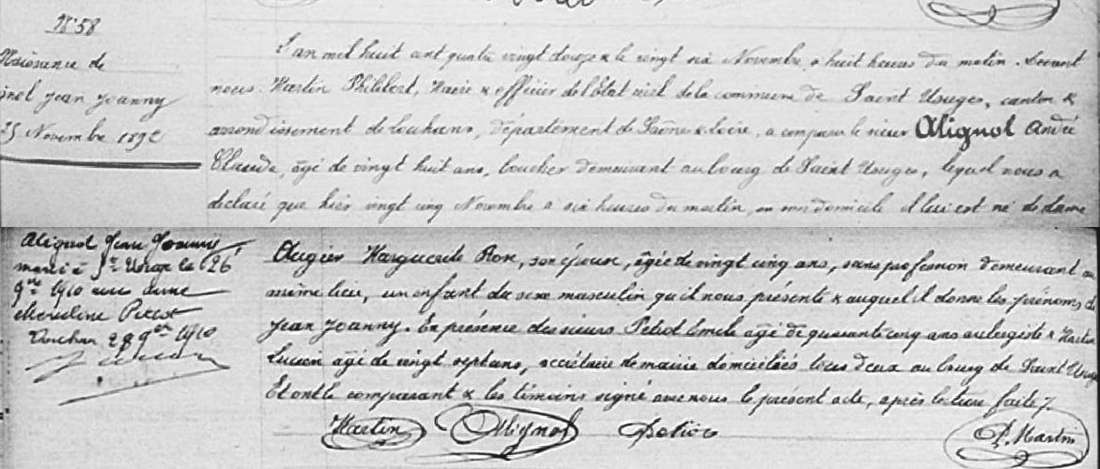 N° 58
Naissance de
gnol Jean Joanny
25 Novembre 1892
L'an mil huit cent quatre vingt douze & le vingt six Novembre, à huit heures du matin. Devant
nous Martin Philibert, Maire & officier de l'État civil de la commune de Saint Usuges, canton &
arrondissement de Louhans, département de Saône & Loire, a comparu le sieur Alignol André
Claude, âgé de vingt huit ans, boucher demeurant au bourg de Saint Usuges, lequel nous a
déclaré que hier vingt cinq Novembre à six heures du matin, en son domicile il lui est né de dame
Augier Marguerite Rose, son épouse, âgée de vingt cinq ans, sans profession demeurant au
même lieu, un enfant du sexe masculin qu'il nous présente & auquel il donne les prénoms de
Jean Joanny. En présence des sieurs Petiot Emile âgé de quarante cinq ans aubergiste & Martin
Lucien âgé de vingt sept ans, secrétaire de mairie domiciliés tous deux au bourg de Saint Usuge
Et ont le comparant & les témoins signé avec nous le présent acte, après lecture faite.
Alignol Jean Joanny
marié à St Usuge le 26
9bre 1910 avec
Petiot
Louhans 28 9bre 1910
Martin Alignol Petiot P. Martin